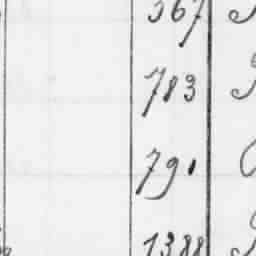 567
783
791
1388